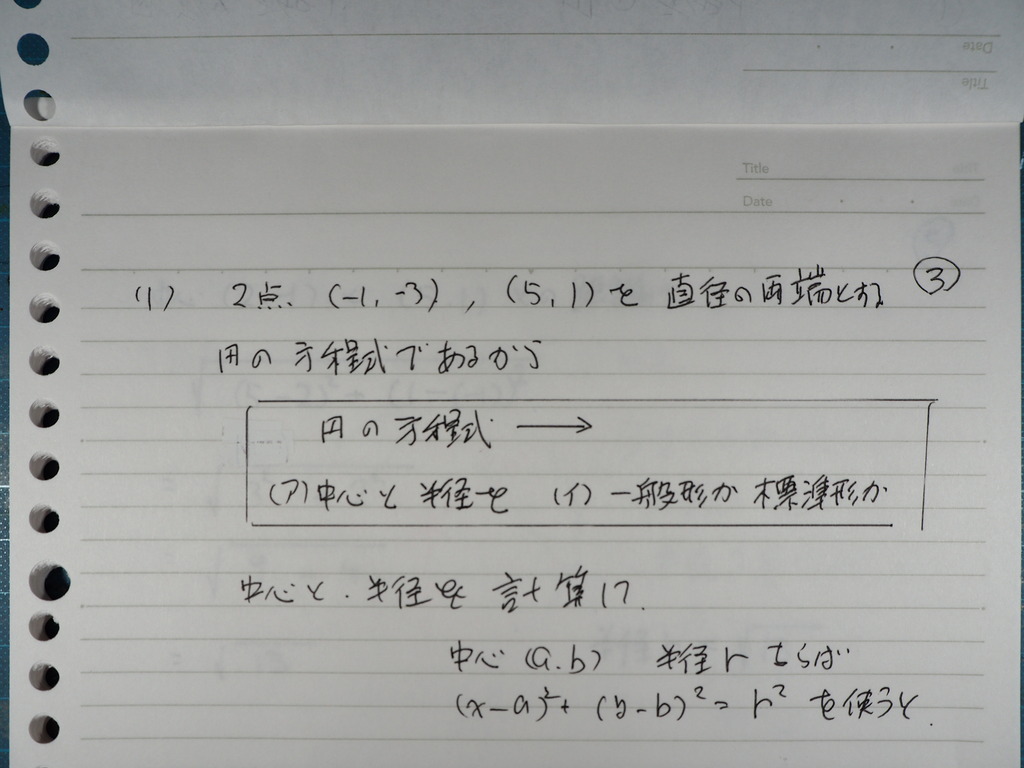 Date
Title
Title
Date
(1) 2点、(-1, -3), (5, 1)を 直径の両端とする ③
円の方程式であるから
円の方程式 →
(ア)中心と半径を (イ)一般形か 標準形か
中心と、半径を 計算して、
中心(a.b) 半径r ならば
(x-a)²+(y-b)²=r² を使うと、